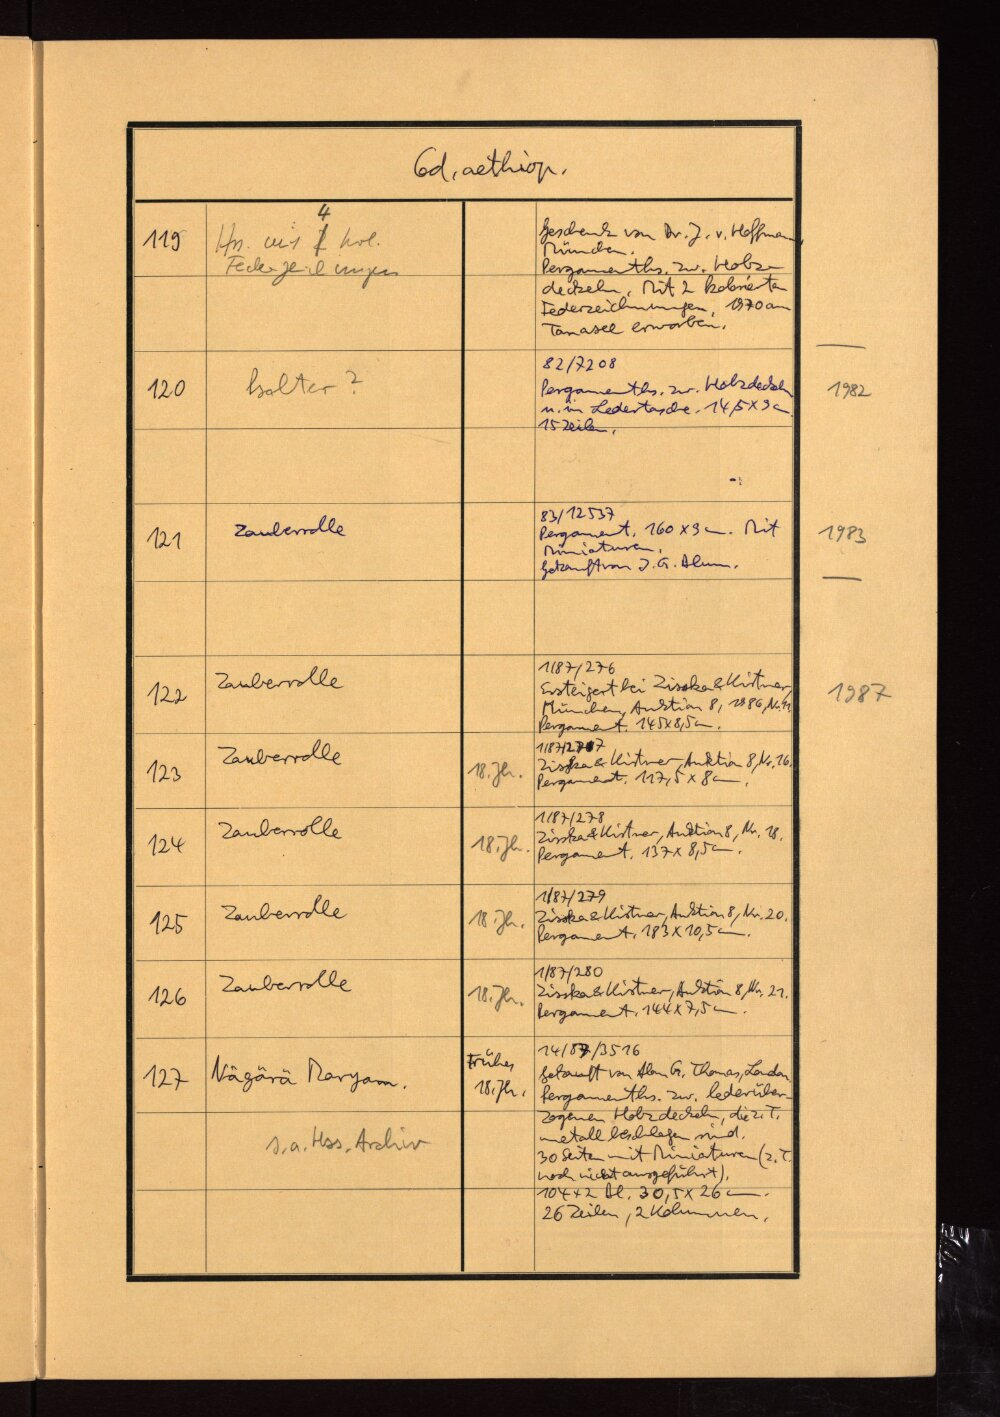 Cod. aethiop.
119
4
Hs. mit 2 kol.
Federzeichnungen
Geschenk von Dr. J. v. Hoffmann,
München.
Pergamenths. zw. Holz-
deckeln. Mit 2 kolorierten
Federzeichnungen, 1970 am
Tanasee erworben.
120
Psalter?
82/7208
Pergamenths. zw. Holzdeckeln
u. in Ledertasche. 14,5 x 9 cm.
15 Zeilen.
1982
121
Zauberrolle
83/12537
Pergament. 160 x 9 cm. Mit
Miniaturen.
Gekauft von J. G. Blum.
1983
122
Zauberrolle
1/87/276
Ersteigert bei Zisska & Kistner,
München, Auktion 8, 1986, Nr. 11.
Pergament. 145 x 8,5 cm.
1987
123
Zauberrolle
18. Jh.
1/87/277
Zisska & Kistner, Auktion 8, Nr. 16.
Pergament. 117,5 x 8 cm.
124
Zauberrolle
18. Jh.
1/87/278
Zisska & Kistner, Auktion 8, Nr. 18.
Pergament. 137 x 8,5 cm.
125
Zauberrolle
18. Jh.
1/87/279
Zisska & Kistner, Auktion 8, Nr. 20.
Pergament. 183 x 10,5 cm.
126
Zauberrolle
18. Jh.
1/87/280
Zisska & Kistner, Auktion 8, Nr. 21.
Pergament. 144 x 7,5 cm.
127
Nägärä Maryam.
Frühes
18. Jh.
s. a. Hss. Archiv
14/87/3516
Gekauft von Alan G. Thomas, London
Pergamenths. zw. lederüber-
zogenen Holzdeckeln, die z. T.
metallbeschlagen sind.
30 Seiten mit Miniaturen (z. T.
noch nicht ausgeführt).
104+2 Bl. 30,5 x 26 cm.
26 Zeilen, 2 Kolumnen.